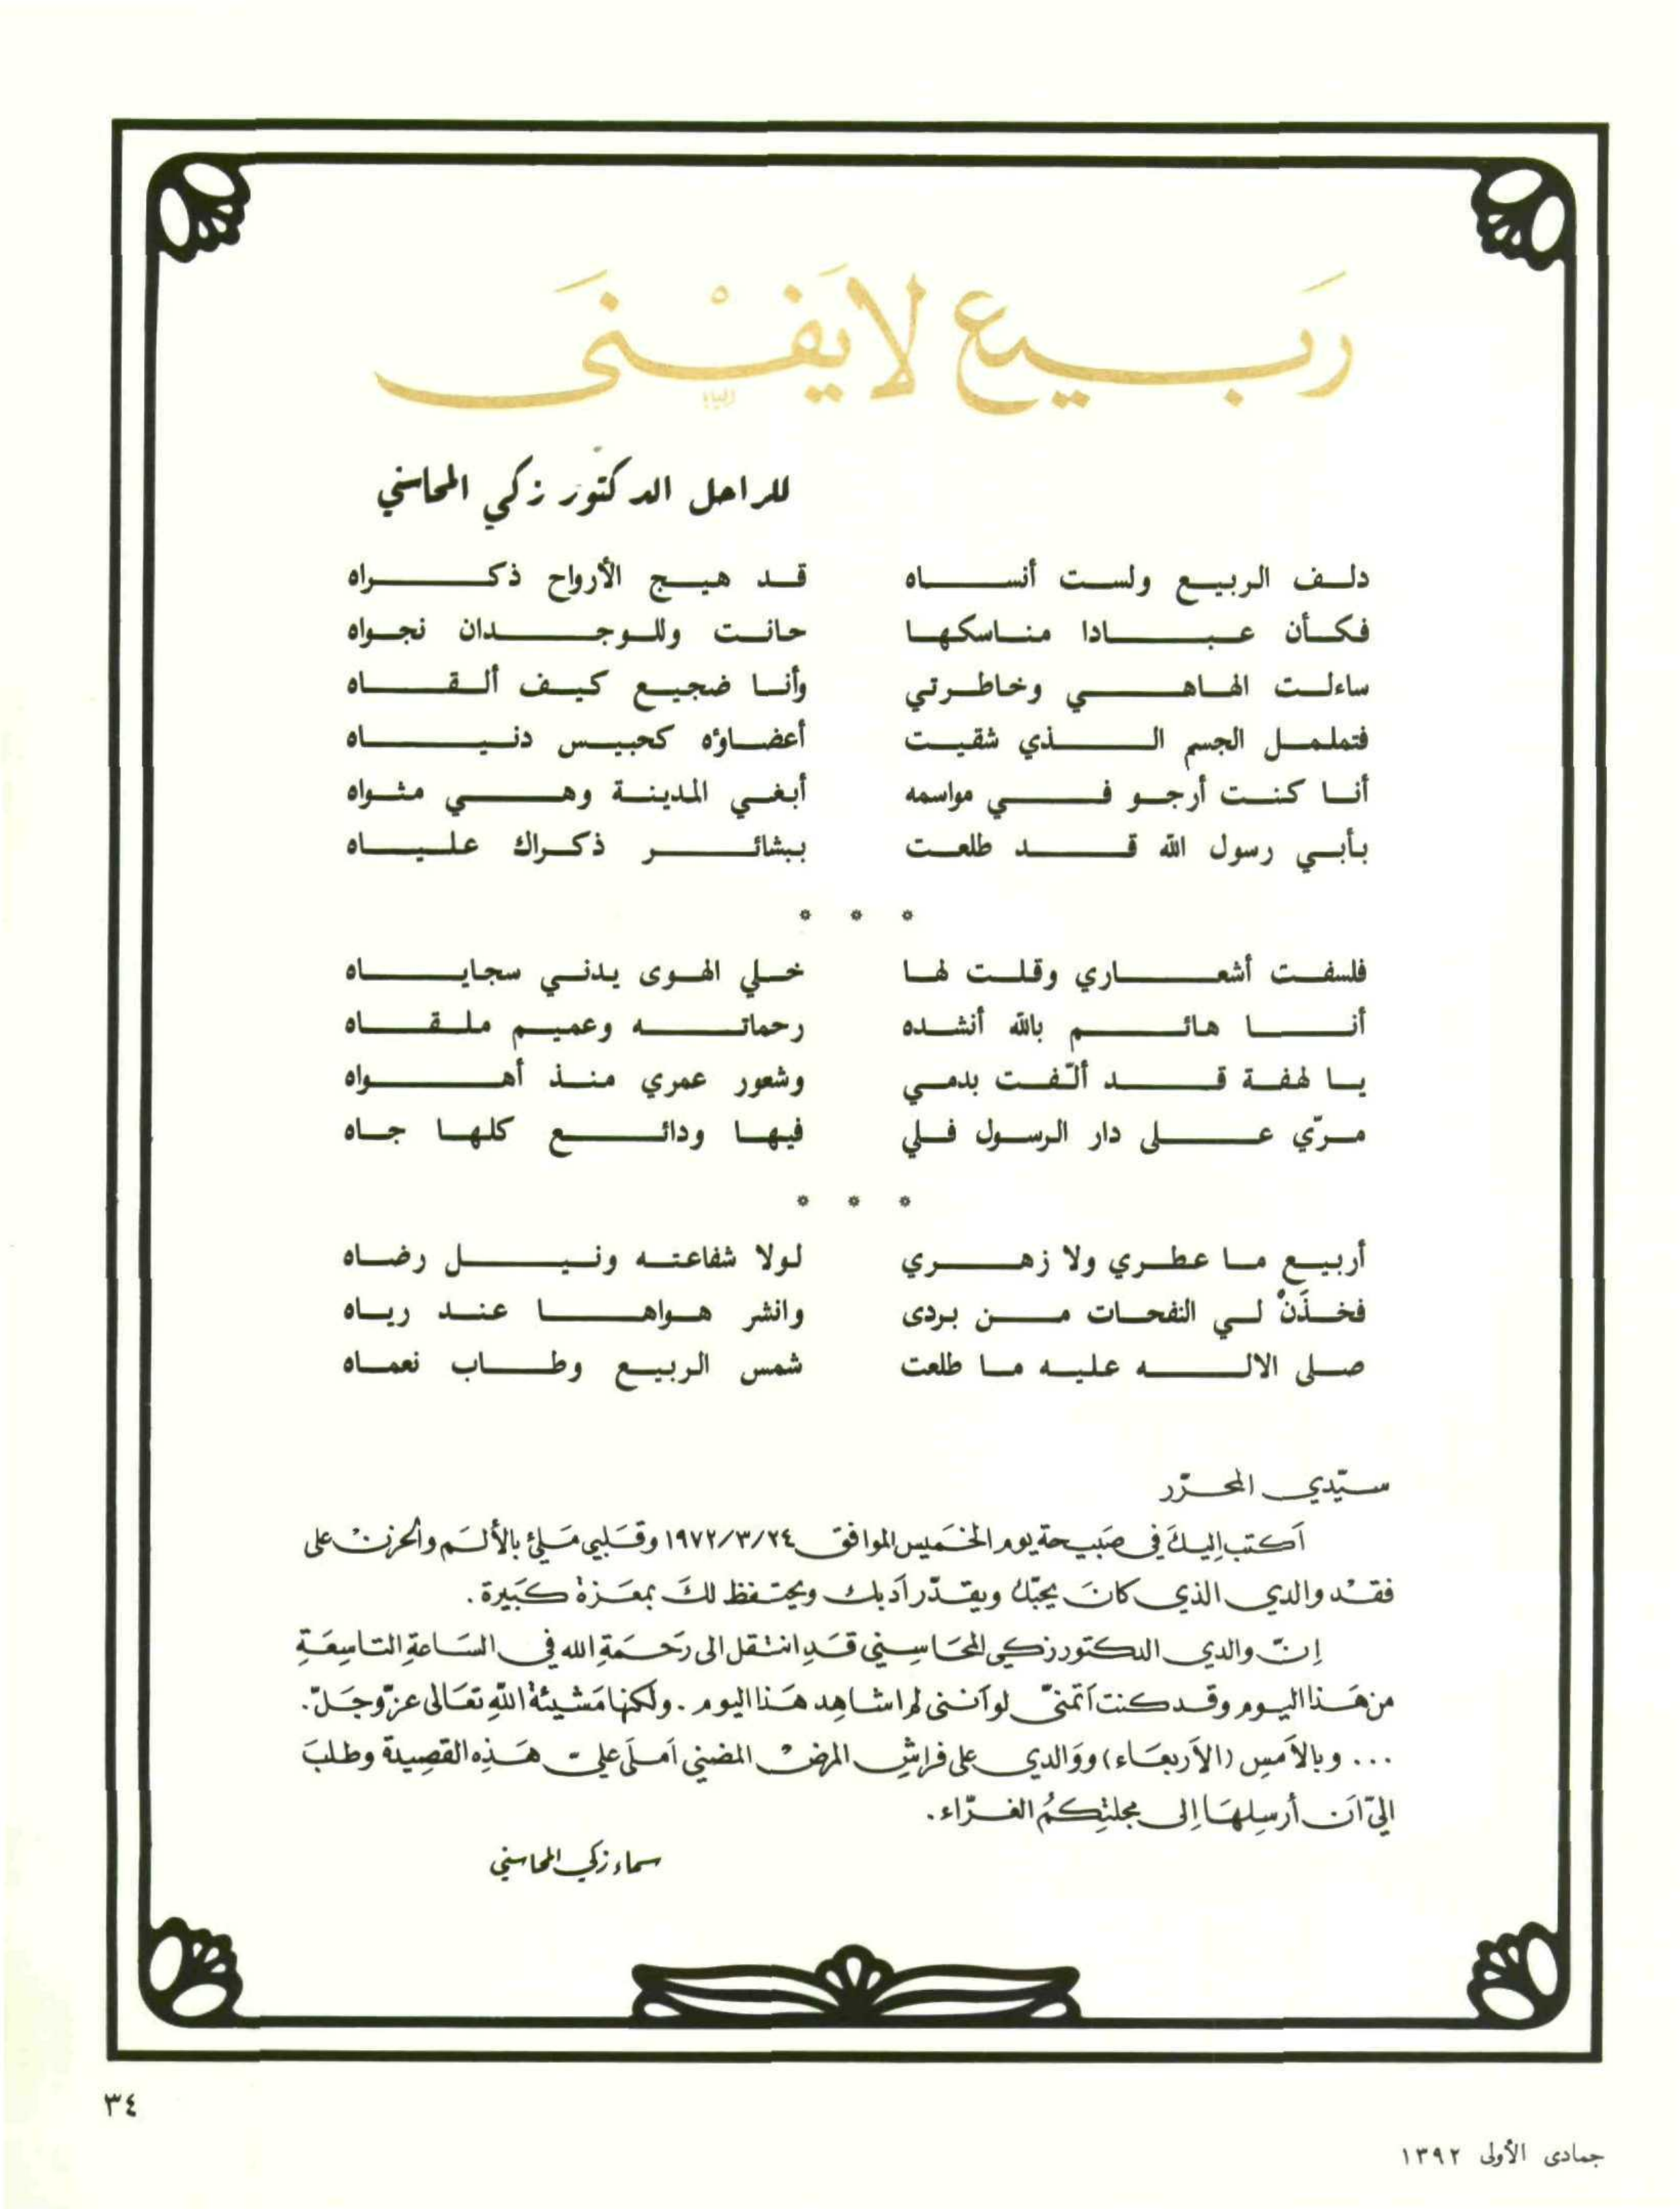 رَبِيع لا يَفْنَى
للراحل الدكتور زكي المحاسني
دلف الربيع ولست أنساه قد هيج الأرواح ذكراه
فكأن عبادا مناسكها حانت وللوجدان نجواه
ساءلت الهاهي وخاطرتي وأنا ضجيع كيف ألقاه
فتململ الجسم الذي شقيت أعضاؤه كحبيس دنياه
أنا كنت أرجو في مواسمه أبغي المدينة وهي مثواه
بأبي رسول الله قد طلعت ببشائر ذكراك علياه
* * *
فلسفت أشعاري وقلت لها خلي الهوى يدني سجاياه
أنا هائم بالله أنشده رحماته وعميم ملقاه
يا لهفة قد ألّفت بدمي وشعور عمري منذ أهواه
مرّي على دار الرسول فلي فيها ودائع كلها جاه
* * *
أربيع ما عطري ولا زهري لولا شفاعته ونيل رضاه
فخذَنْ لي النفحات من بردى وانشر هواها عند رياه
صلى الاله عليه ما طلعت شمس الربيع وطاب نعماه
سيّدي المحرّر
أكتب إليك في صبيحة يوم الخميس الموافق ١٩٧٢/٣/٢٤ وقلبي مليئ بالألم والحزن على
فقد والدي الذي كان يحبّك ويقدّر أدبك ويحتفظ لك بمعزة كبيرة .
إنّ والدي الدكتور زكي المحاسني قد انتقل الى رحمة الله في الساعة التاسعة
من هذا اليوم وقد كنت أتمنّى لو أنني لم اشاهد هذا اليوم . ولكنها مشيئة الله تعالى عزّ وجلّ .
... وبالأمس (الأربعاء) ووالدي على فراش المرض المضني أملى عليّ هذه القصيدة وطلب
اليّ أن أرسلها إلى مجلتكم الغرّاء .
سماء زكي المحاسني
٣٤
جمادى الأولى ١٣٩٢